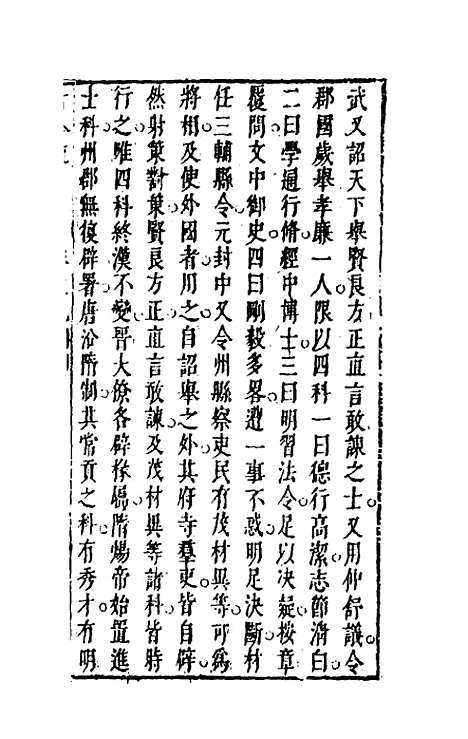 武又詔天下舉賢良方正直言敢諫之士又用仲舒議令
郡國歲舉孝廉一人限以四科一曰德行高潔志節清白
二曰學通行脩經中博士三曰明習法令足以决疑按章
覆問文中御史四曰剛毅多畧遭一事不惑明足決斷材
任三輔縣令元封中又令州縣察吏民有茂材異等可爲
將相及使外國者用之自詔舉之外其府寺羣吏皆自辟
然射策對策賢良方正直言敢諫及茂材異等諸科皆時
行之唯四科終漢不變晉大僚各辟掾屬隋煬帝始置進
士科州郡無復辟署唐沿隋制其常貢之科有秀才有明